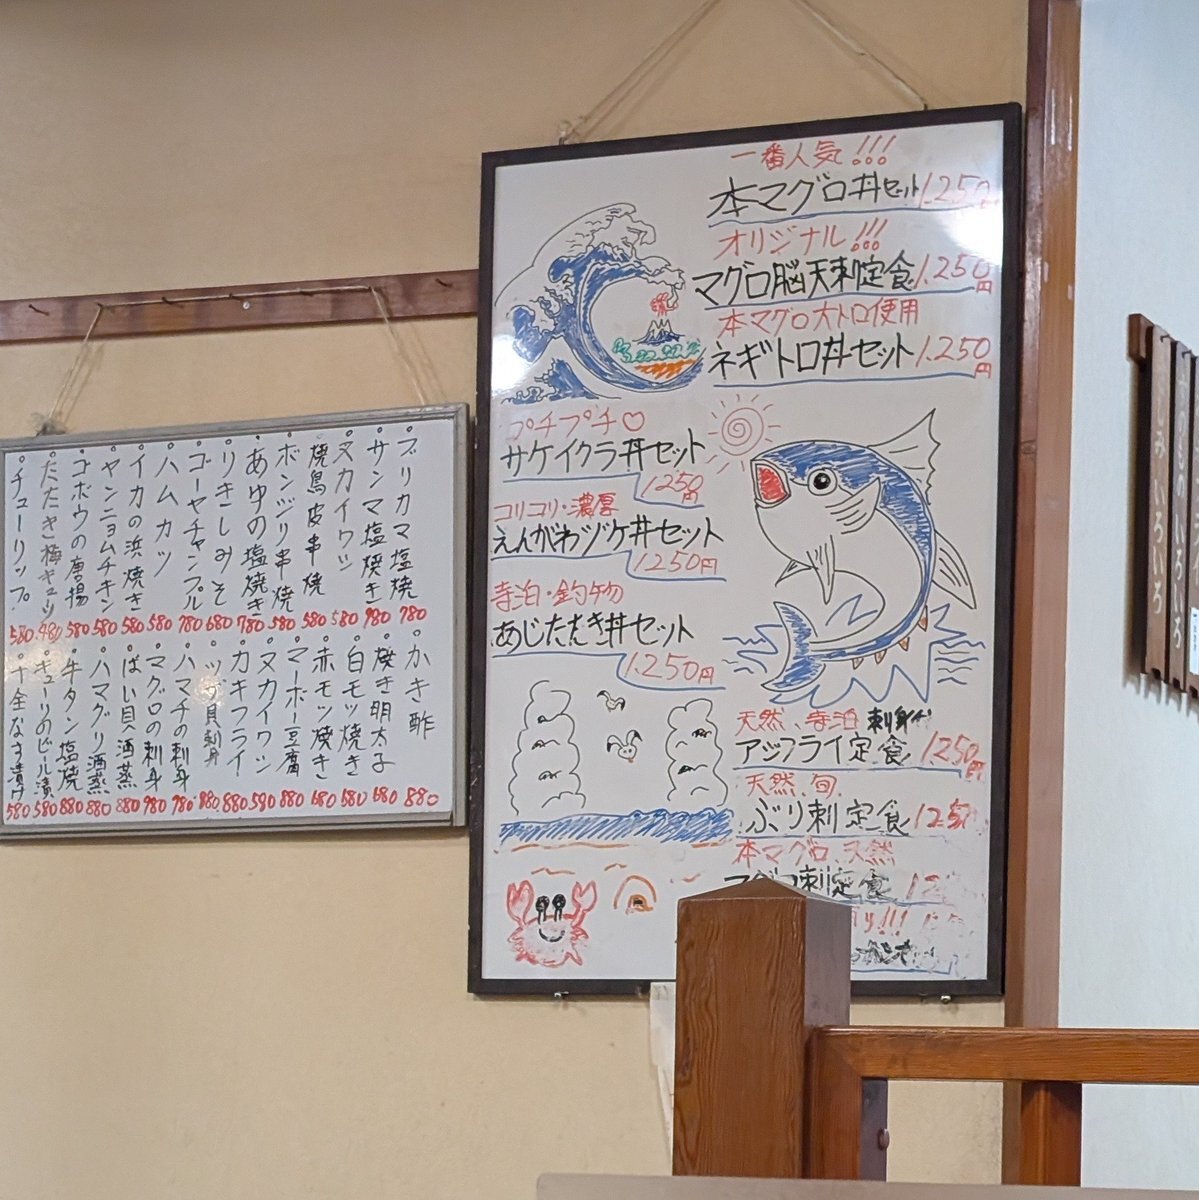 一番人気!!!
本マグロ丼セット1.250
オリジナル!!!
マグロ脳天刺定食1.250円
本マグロ大トロ使用
ネギトロ丼セット1.250円
プチプチ♡
サケイクラ丼セット
1250円
コリコリ・濃厚
えんがわヅケ丼セット
1.250円
寺泊・釣物
あじたたき丼セット
1.250円
天然、寺泊 刺身
アジフライ定食 1.250円
天然、旬
ぶり刺定食 1250
本マグロ、天然
マグロ刺定食
ブリカマ塩焼 780
サンマ塩焼き 980
ヌカイワシ 580
焼鳥皮串焼 580
ボンジリ串焼 580
あゆの塩焼き 780
りきしみそ 680
ゴーヤチャンプル 780
ハムカツ 580
イカの浜焼き 580
ヤンニョムチキン 580
ゴボウの唐揚 580
たたき梅キュウ 480
チューリップ 580
かき酢 880
焼き明太子 680
白モツ焼き 580
赤モツ焼き 680
マーボー豆腐 880
ヌカイワシ 590
カキフライ 880
ツブ貝刺身 980
ハマチの刺身 980
マグロの刺身 980
ばい貝酒蒸 880
ハマグリ酒蒸 880
牛タン塩焼 880
キューリのビール漬 580
十全なす漬け 580
いろいろ